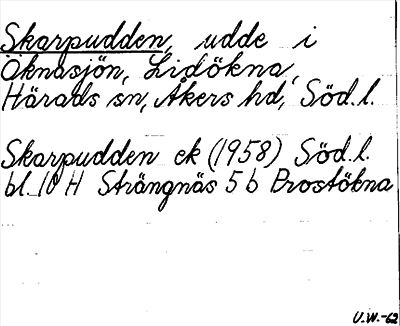 Skarpudden, udde i
Öknasjön, Lidökna,
Härads sn, Åkers hd, Söd.l.
Skarpudden ek (1958) Söd.l.
bl. 10 H Strängnäs 5 b Prostökna
U.W.-62